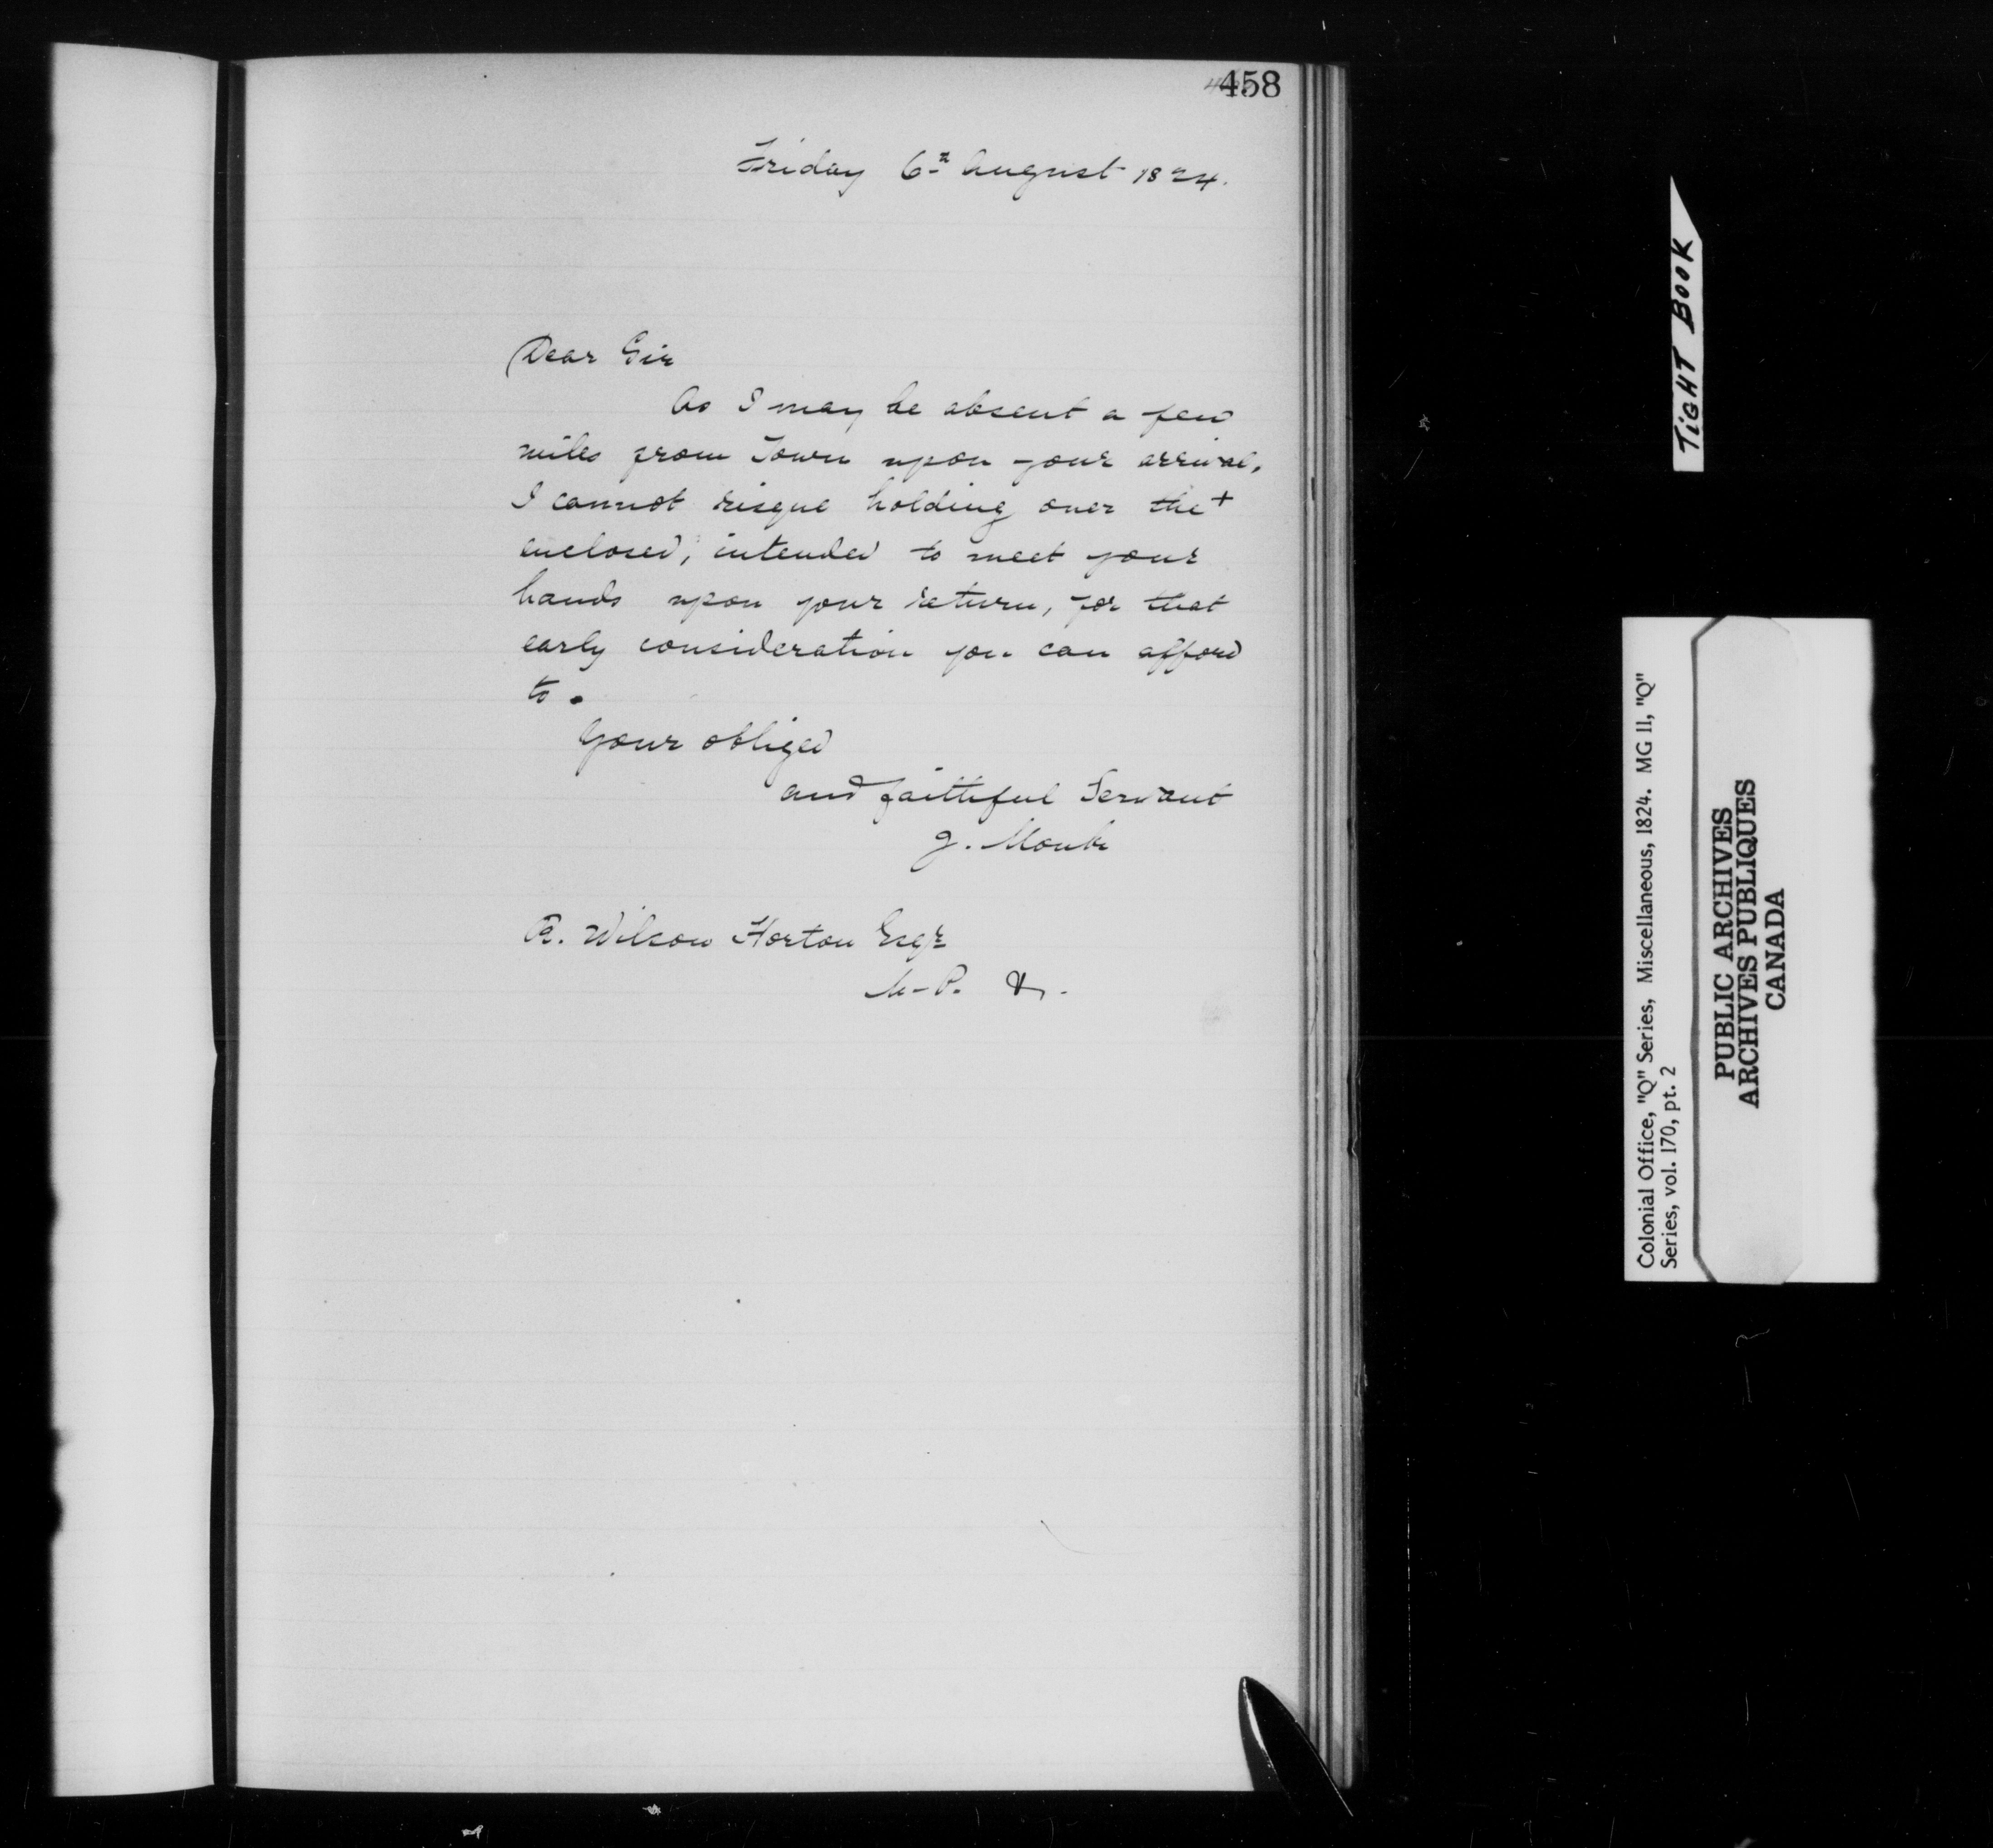 458
Friday 6th August 1824.
Dear Sir
As I may be absent a few
miles from Town upon your arrival,
I cannot risque holding over the +
enclosed, intended to meet your
hands upon your return, for that
early consideration you can afford
to.
Your obliged
and faithful Servant
J. Monk
R. Wilson Horton Esqr
M.P. &.
TIGHT BOOK
Colonial Office, "Q" Series, Miscellaneous, 1824. MG 11, "Q"
Series, vol. 170, pt. 2
PUBLIC ARCHIVES
ARCHIVES PUBLIQUES
CANADA